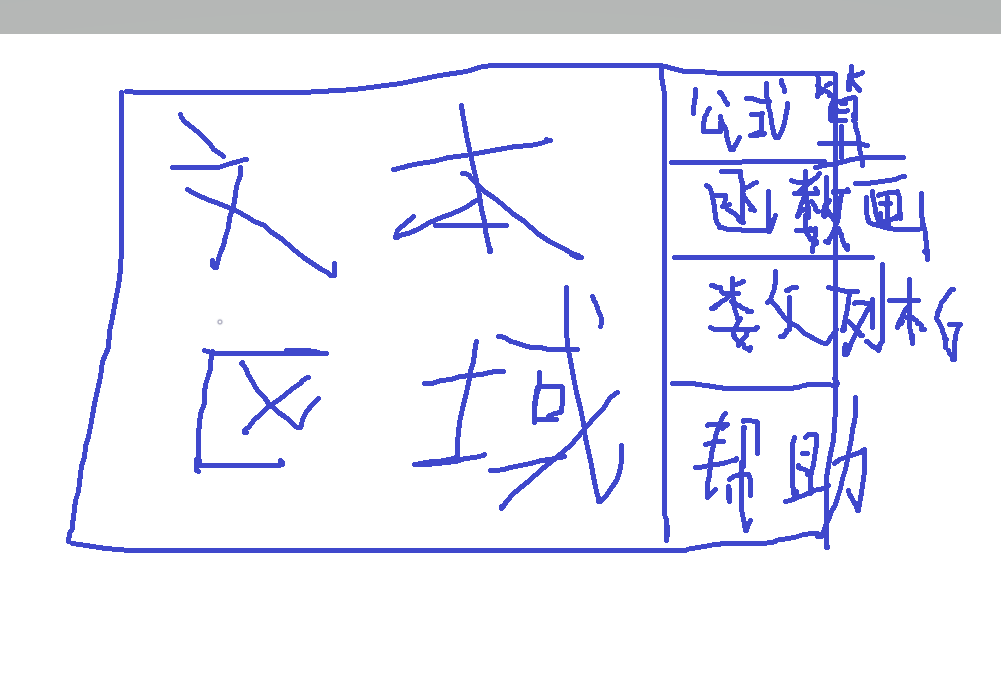 文本
区域
公式算
函数画
数列
帮助